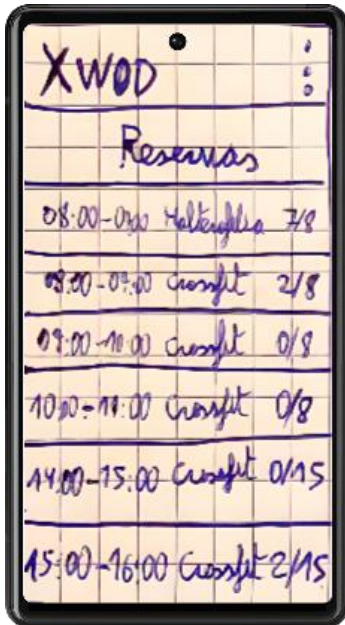 XWOD
Reservas
08:00-09:00 Halterofilia 7/8
08:00-09:00 Crossfit 2/8
09:00-10:00 Crossfit 0/8
10:00-11:00 Crossfit 0/8
14:00-15:00 Crossfit 0/15
15:00-16:00 Crossfit 2/15